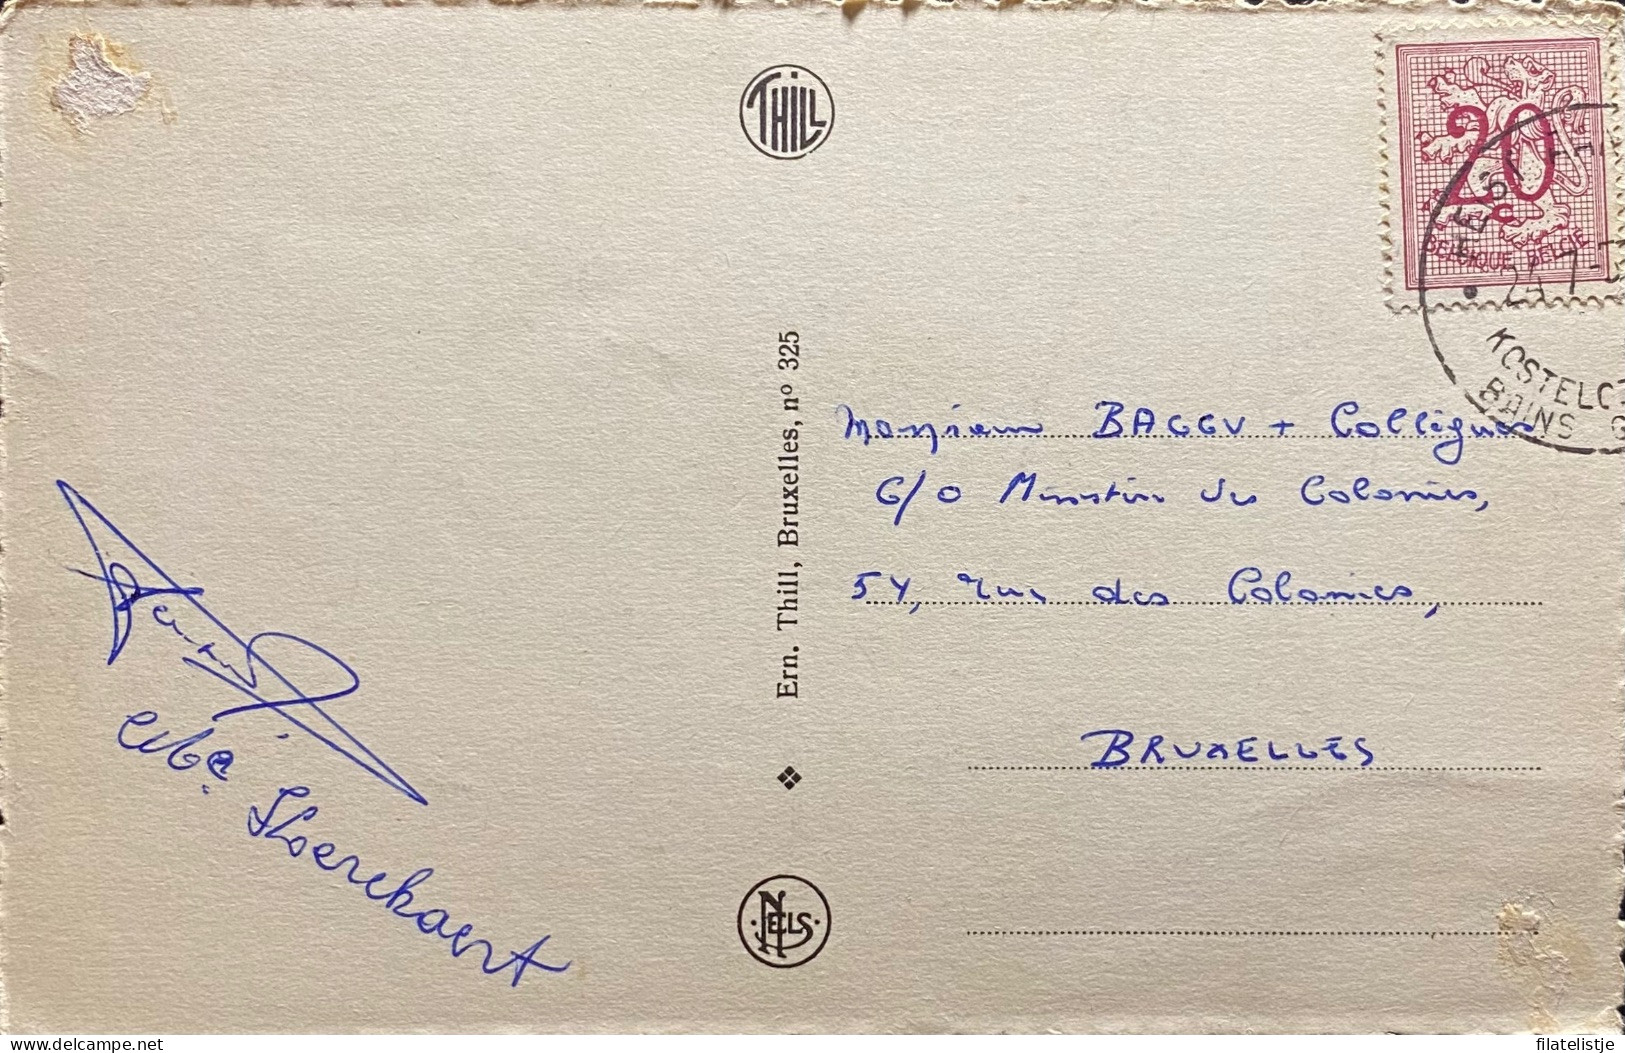 THILL
20
c
BELGIQUE BELGIE
HEIST
24-7-
KOSTELO
BAINS G
Ern. Thill, Bruxelles, nº 325
Monsieur BAGGU + Collègues
C/O Ministère des Colonies,
54, rue des Colonies,
BRUXELLES
NELS
delcampe.net
filatelistje